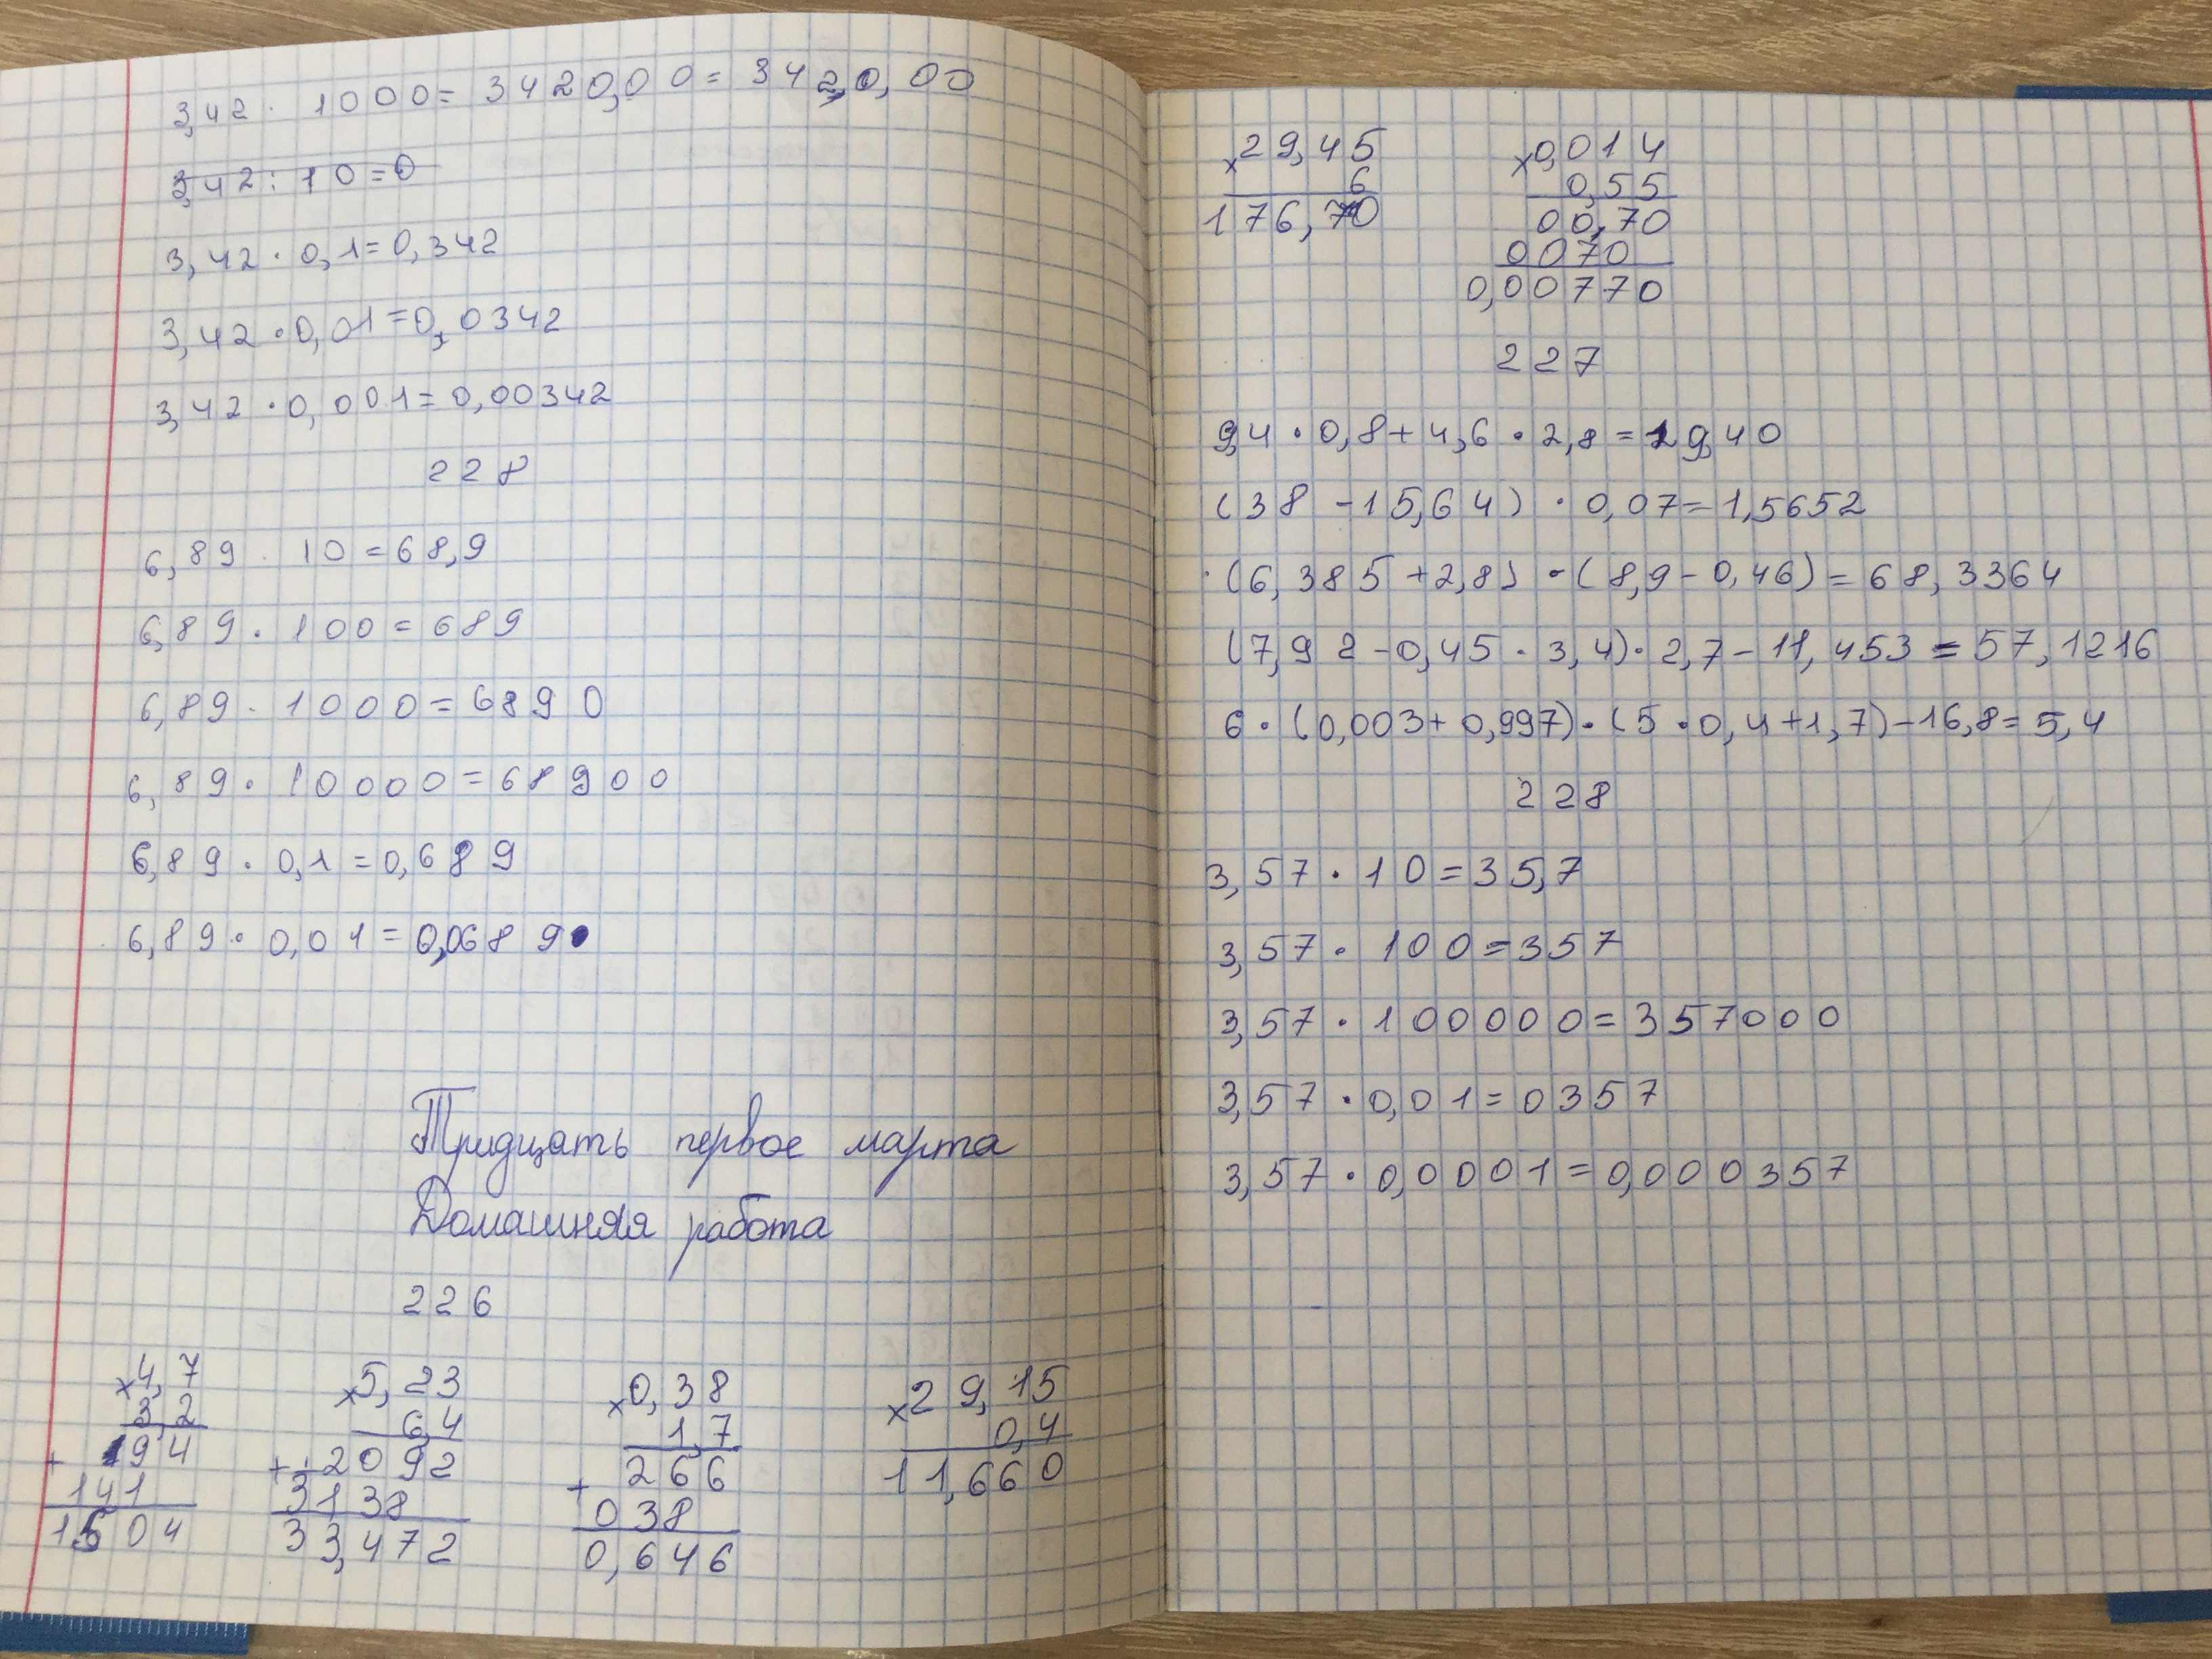 3,42 · 1000 = 3420,00 = 342,0,00
3,42 : 10 = 0
3,42 · 0,1 = 0,342
3,42 · 0,01 = 0,0342
3,42 · 0,001 = 0,00342
228
6,89 · 10 = 68,9
6,89 · 100 = 689
6,89 · 1000 = 6890
6,89 · 10000 = 68900
6,89 · 0,1 = 0,689
6,89 · 0,01 = 0,0689
Тридцать первое марта
Домашняя работа
226
× 4,7 × 5,23 × 0,38 × 29,15
3,2 6,4 1,7 0,4
+ 194 + 2092 + 266 11,660
141 3138 038
1504 33,472 0,646
× 29,45 × 0,014
6 0,55
176,70 00,70
0070
0,00770
227
9,4 · 0,8 + 4,6 · 2,8 = 29,40
(38 - 15,64) · 0,07 = 1,5652
(6,385 + 2,8) · (8,9 - 0,46) = 68,3364
(7,92 - 0,45 · 3,4) · 2,7 - 11,453 = 57,1216
6 · (0,003 + 0,997) · (5 · 0,4 + 1,7) - 16,8 = 5,4
228
3,57 · 10 = 35,7
3,57 · 100 = 357
3,57 · 100000 = 357000
3,57 · 0,01 = 0357
3,57 · 0,0001 = 0,000357